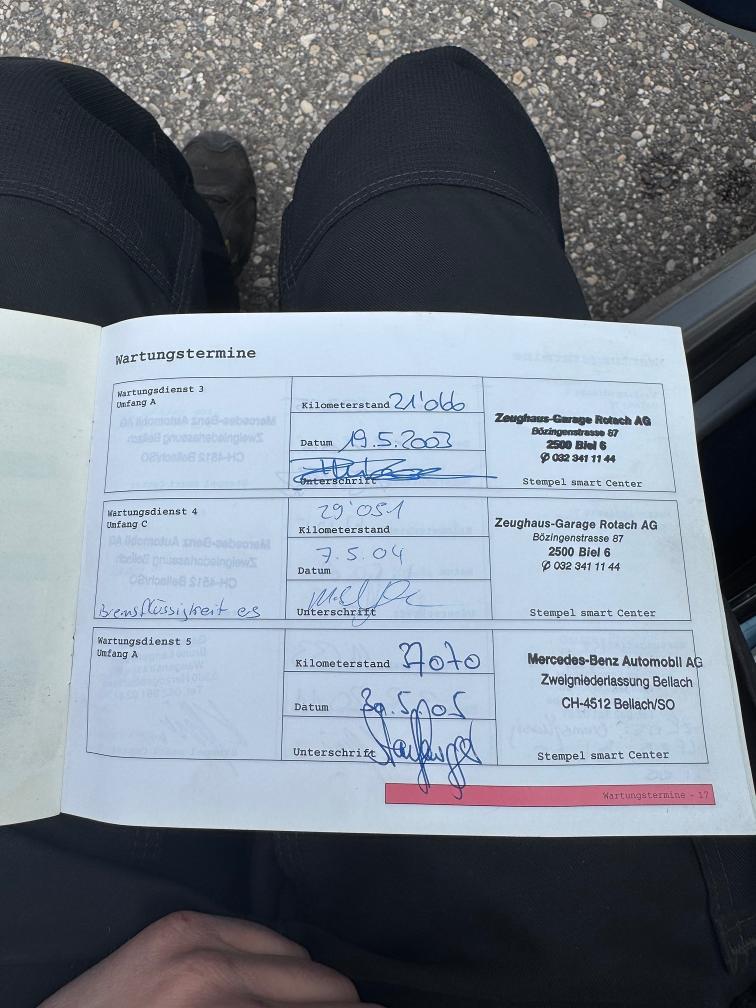 Wartungstermine
Wartungsdienst 3
Umfang A
Kilometerstand 21'066
Datum 19.5.2003
Unterschrift
Zeughaus-Garage Rotach AG
Bözingenstrasse 87
2500 Biel 6
✆ 032 341 11 44
Stempel smart Center
Wartungsdienst 4
Umfang C
Bremsflüssigkeit es
29'051
Kilometerstand
7.5.04
Datum
Unterschrift
Zeughaus-Garage Rotach AG
Bözingenstrasse 87
2500 Biel 6
✆ 032 341 11 44
Stempel smart Center
Wartungsdienst 5
Umfang A
Kilometerstand 37070
Datum 30.5.05
Unterschrift
Mercedes-Benz Automobil AG
Zweigniederlassung Bellach
CH-4512 Bellach/SO
Stempel smart Center
Wartungstermine - 17